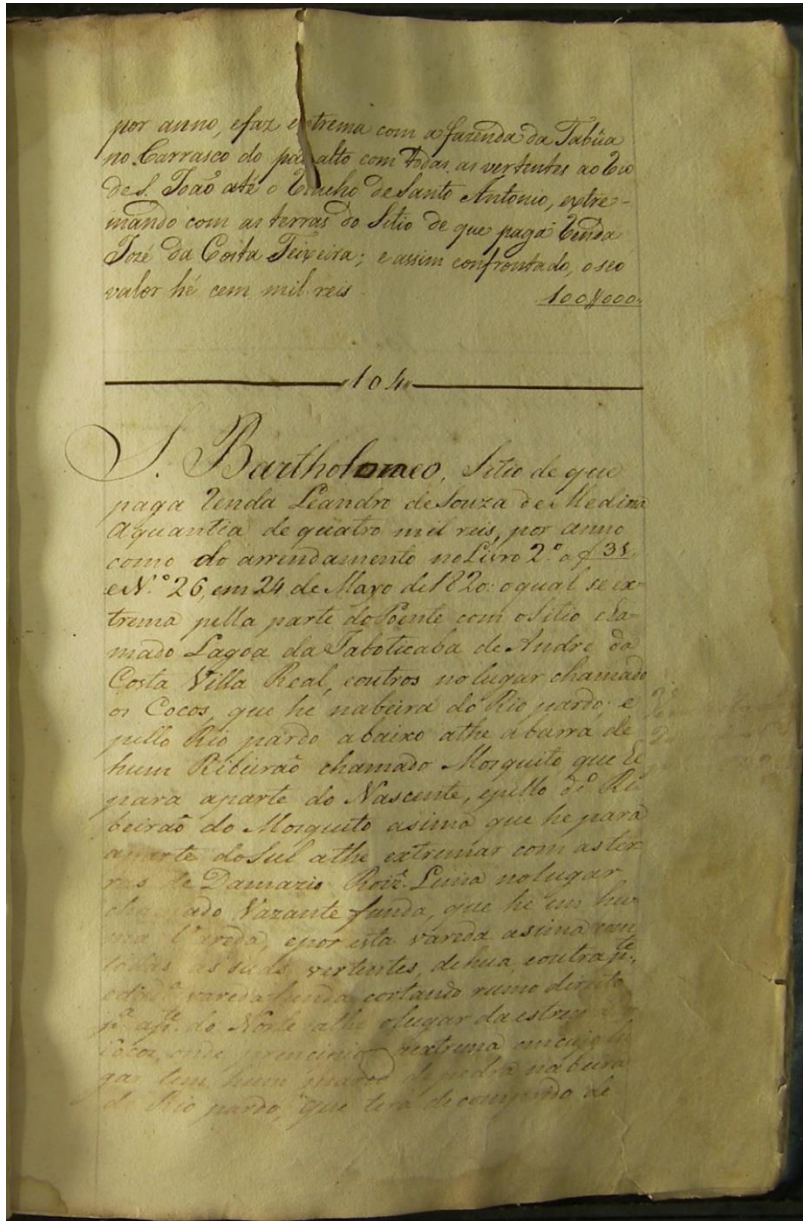 por anno, e faz extrema com a fazenda da Tabûa
no Carrasco do páo alto com todas as vertentes ao Rio
de S. João até o Riacho de Santo Antonio, extre-
mando com as terras do Sitio de que paga Renda
José da Costa Teixeira; e assim confrontado, o seo
valor hé cem mil reis 100$000
104
S. Bartholomeo, Sitio de que
paga Renda Leandro de Souza de Medina
a quantia de quatro mil reis, por anno
como do arrendamento no Livro 2.º a f 35
e N.º 26, em 24 de Março de 1820: o qual se ex-
trema pella parte do Poente com o Sitio cha-
mado Lagoa da Jaboticaba de Andre da
Costa Villa Real, e outros no lugar chamado
os Cocos, que he na beira do Rio pardo; e
pello Rio pardo abaixo athe a barra de
hum Ribeiraõ chamado Mosquito que he
para a parte do Nascente, e pello d.º Ri-
beiraõ do Mosquito asima que he para
a parte do Sul athe extremar com as ter-
ras de Damazio Roiz Luina no lugar
chamado Vazante funda, que hé em hu-
ma Vareda, e por esta vareda asima com
todas as suas vertentes, de hua e outra p.te,
vareda funda cortando rumo direito
p.ª a p.te do Norte athe o lugar da estrema
Cocos, onde principiou a extrema em cujo lu-
gar tem hum marco de pedra na beira
do Rio pardo, que terá de comprido de